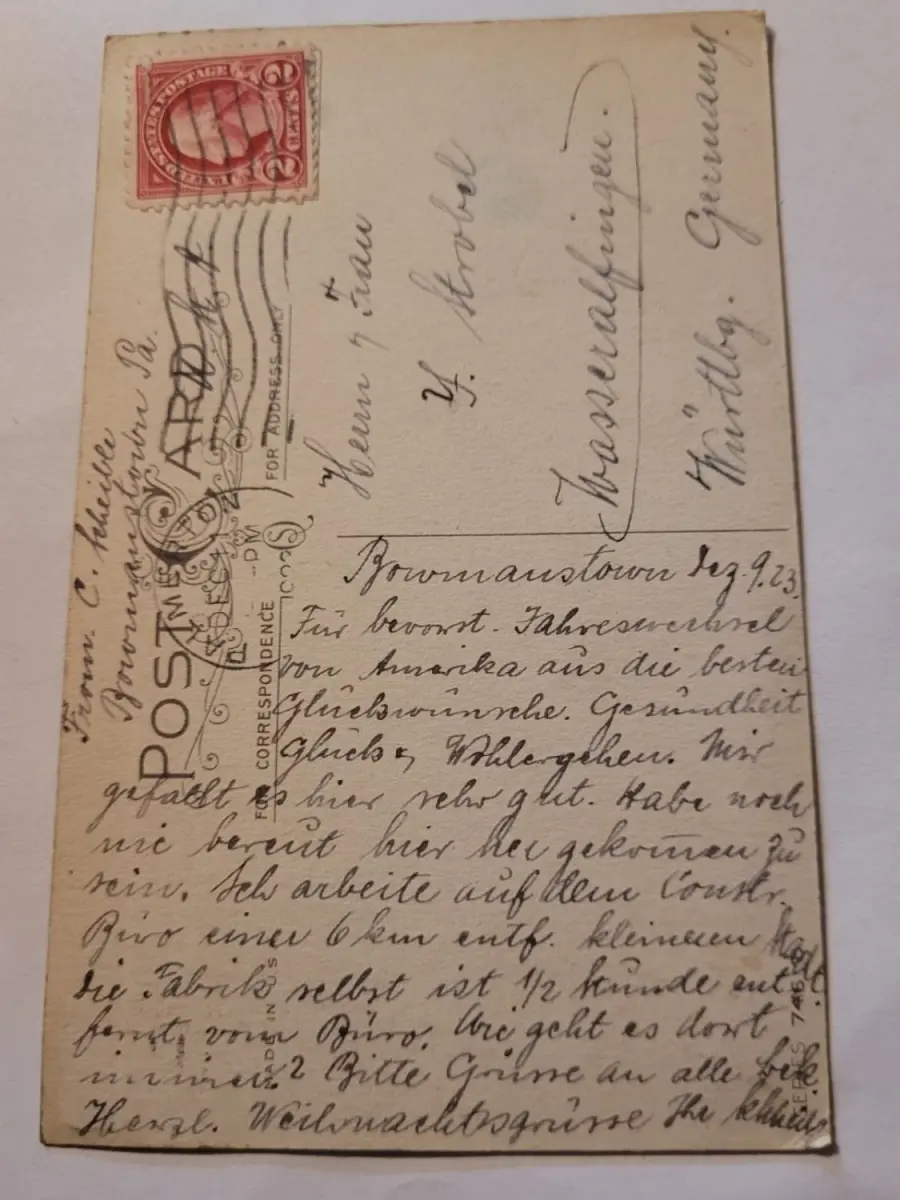 UNITED STATES POSTAGE
2 CENTS 2
From C. Scheible
Bowmanstown Pa.
POST CARD
FOR CORRESPONDENCE
FOR ADDRESS ONLY
DEC
PM
Herrn & Frau
Strobel
Wasseralfingen.
Württbg. Germany.
Bowmanstown Dez. 9. 23.
Für bevorst. Jahreswechsel
von Amerika aus die besten
Glückwünsche. Gesundheit
Glück & Wohlergehen. Mir
gefällt es hier sehr gut. Habe noch
nie bereut hier her gekommen zu
sein. Ich arbeite auf dem Constr.
Büro einer 6 km entf. kleineren Stadt
die Fabrik selbst ist 1/2 Stunde ent
fernt vom Büro. Wie geht es dort
immer? Bitte Grüsse an alle bek.
Herzl. Weihnachtsgrüsse Ihr
MADE IN U.S.
SERIES 746